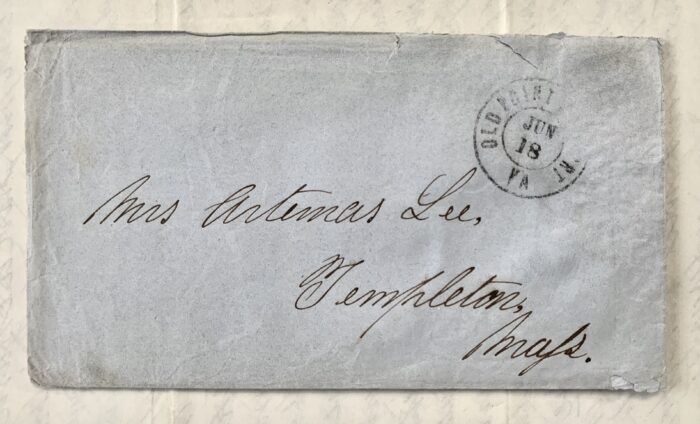 OLD POINT
RT
JUN
18
VA
Mrs Artemas Lee,
Templeton,
Maſs.